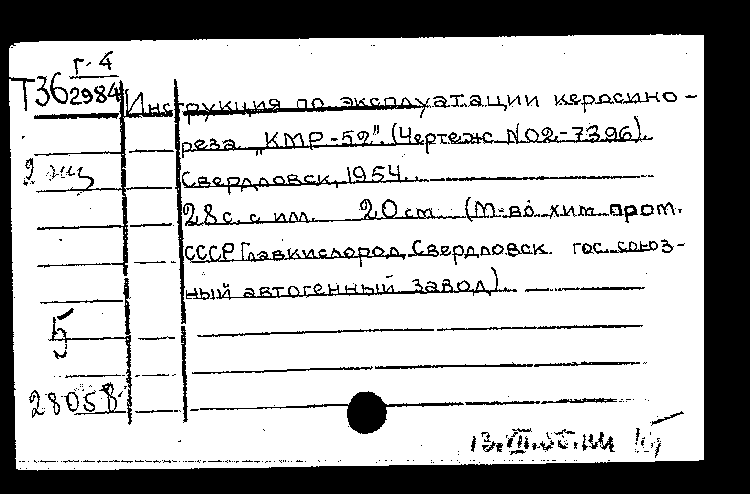 Г-4
Т36 2984
Инструкция по эксплуатации керосино-
реза „КМР-52". (Чертеж N02-7396).
2 экз
Свердловск, 1954.
28 с. с ил. 20 см (М-во хим. пром.
СССР Главкислород, Свердловск. гос. союз-
ный автогенный завод).
5
28058
13.VII.55.